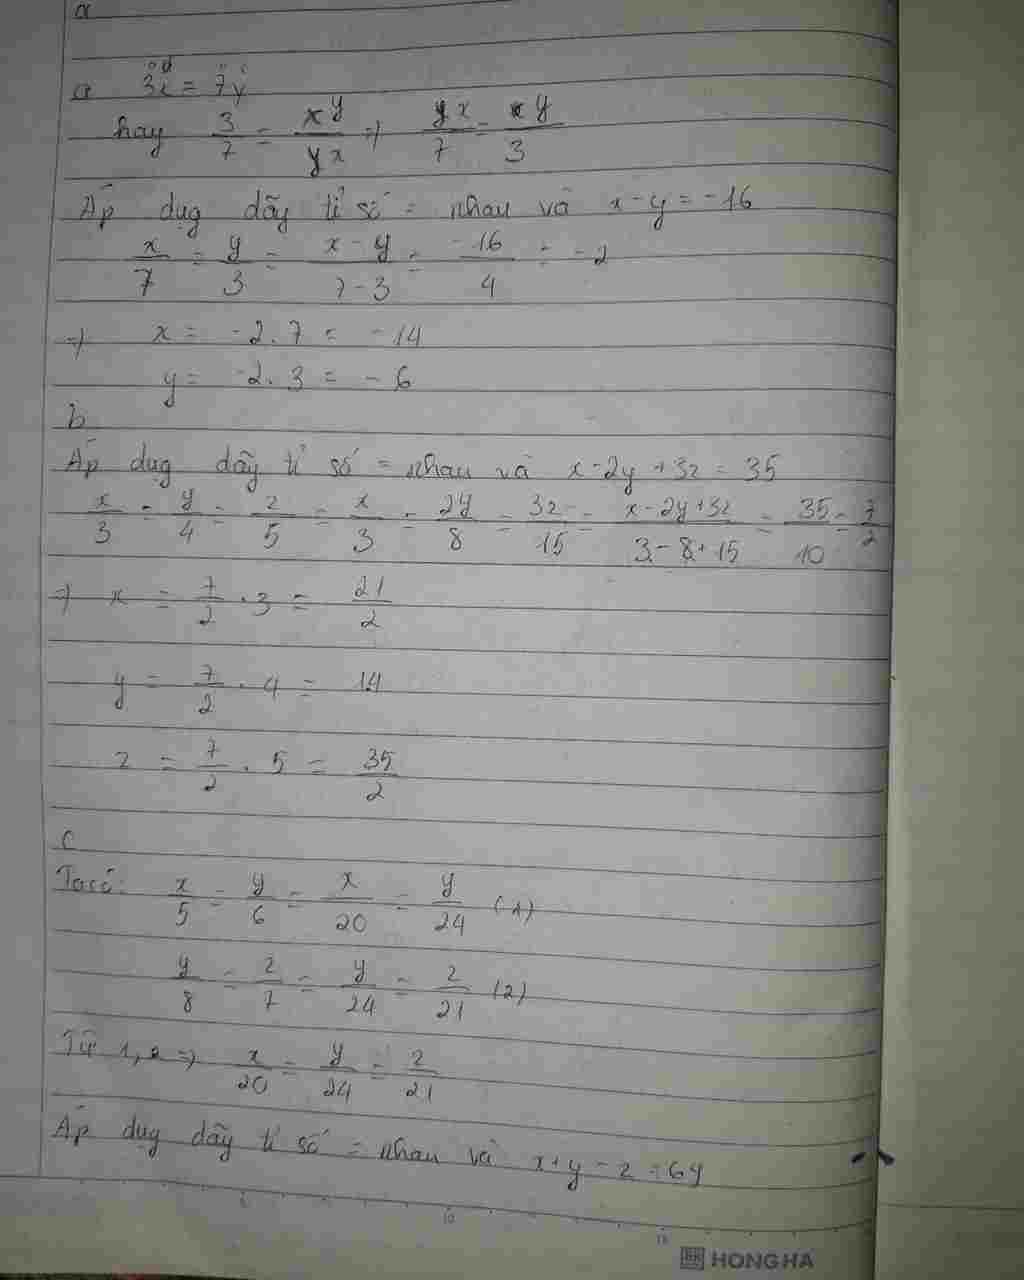 a
a 3x = 7y
hay 3/7 = y/x => x/7 = y/3
Áp dụg dãy tỉ số = nhau và x - y = -16
x/7 = y/3 = (x - y)/(7 - 3) = -16/4 = -2
=> x = -2 . 7 = -14
y = -2 . 3 = -6
b
Áp dụg dãy tỉ số = nhau và x - 2y + 3z = 35
x/3 = y/4 = z/5 = x/3 = 2y/8 = 3z/15 = (x - 2y + 3z)/(3 - 8 + 15) = 35/10 = 7/2
=> x = 7/2 . 3 = 21/2
y = 7/2 . 4 = 14
z = 7/2 . 5 = 35/2
c
Ta có: x/5 = y/6 = x/20 = y/24 (1)
y/8 = z/7 = y/24 = z/21 (2)
Từ 1, 2 => x/20 = y/24 = z/21
Áp dụg dãy tỉ số = nhau và x + y - z = 69
10
15
HONG HA